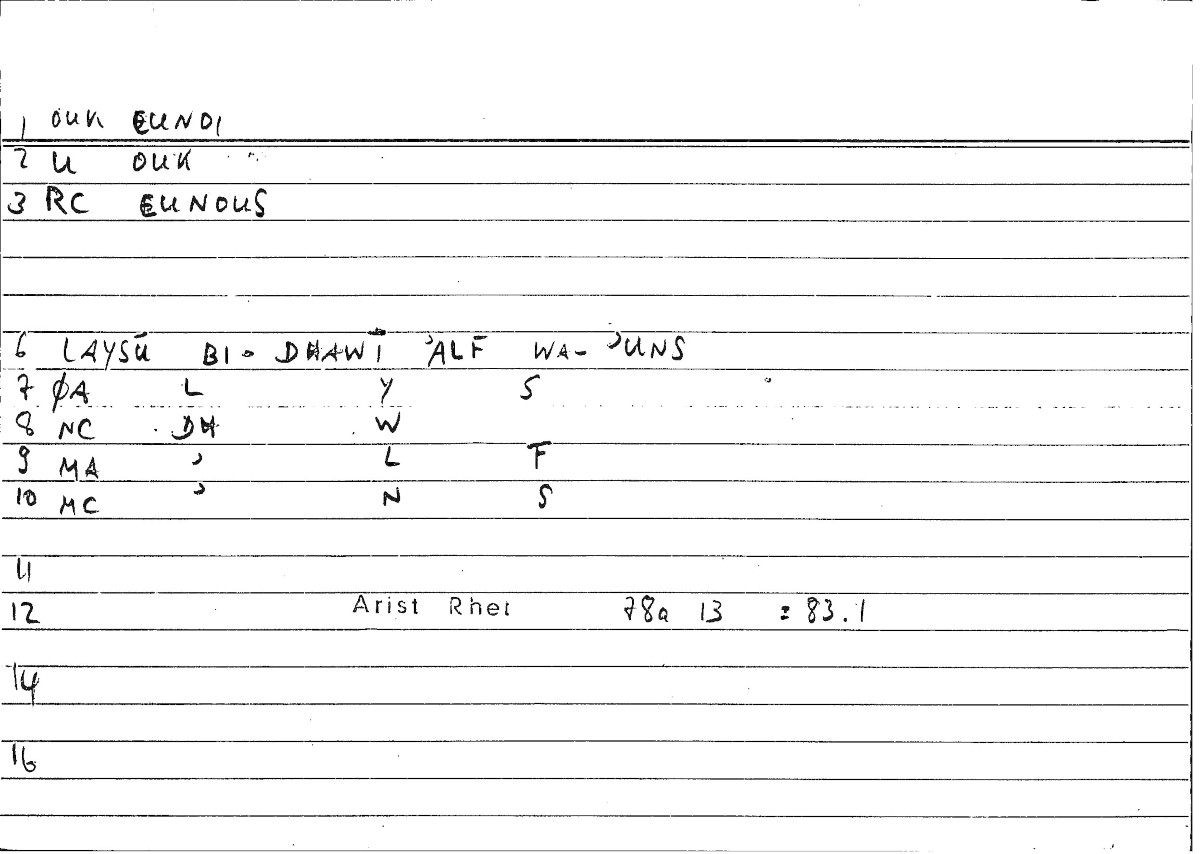 1 OUK EUNOI
2 U OUK
3 RC EUNOUS
6 LAYSŪ BI- DHAWĪ ʾALF WA- ʾUNS
7 ØA L Y S
8 NC DH W
9 MA ʾ L F
10 MC ʾ N S
11
12 Arist Rhet 78a 13 = 83.1
14
16